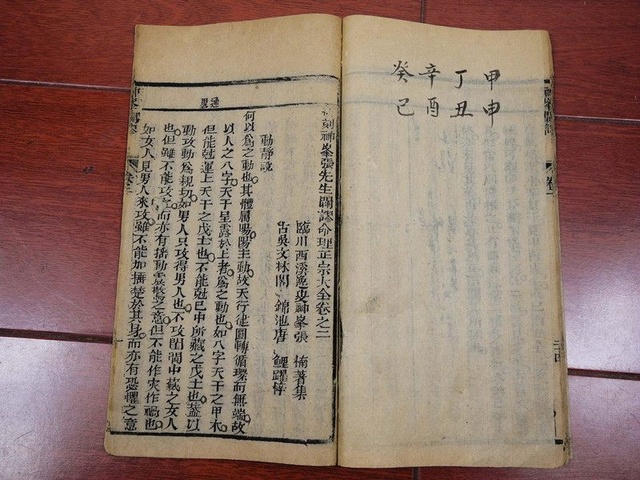 甲申
丁丑
辛酉
癸巳
刻神峯張先生闢謬命理正宗大全卷之二
臨川西溪逸叟神峯張 楠著集
古吳文林閣 錦池唐 鯉躍梓
動靜說
何以爲之動也其體屬陽陽主動故天行健圓轉循環而無端故
以人之八字天干呈露於上者爲之動也如八字天干之甲木
但能尅運上天干之戊土也不能尅巳中所藏之戊土也蓋以
動攻動爲親切如男人只攻得男人也不攻閨閫中藏之女人
也但雖不能攻而亦有搖動震驚之意但不能作災作禍也
如女人見男人來攻雖不能加捶楚於其身而亦有恐懼之意